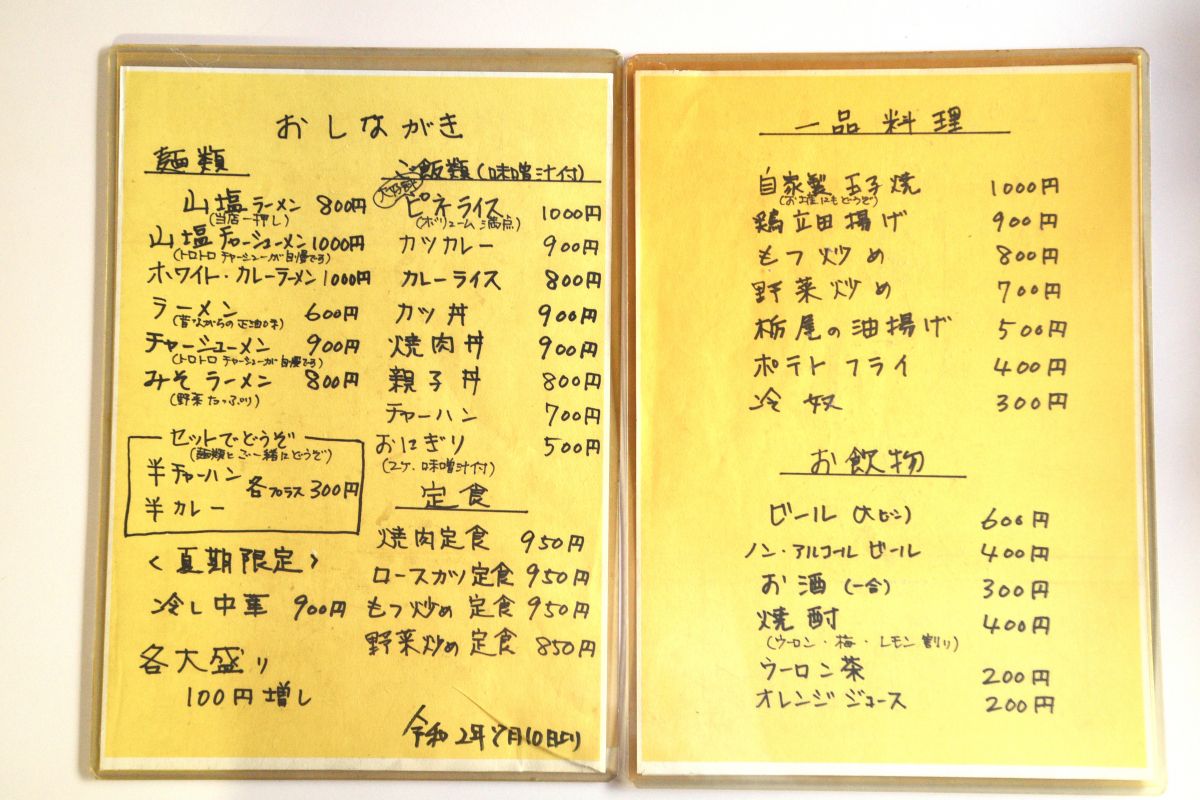 おしながき
麺類
山塩ラーメン 800円
(当店一押し)
山塩チャーシューメン 1000円
(トロトロチャーシューが自慢です)
ホワイト・カレーラーメン 1000円
ラーメン 600円
(昔ながらの正油味)
チャーシューメン 900円
(トロトロチャーシューが自慢です)
みそラーメン 800円
(野菜たっぷり)
セットでどうぞ
(麺類とご一緒にどうぞ)
半チャーハン
半カレー
各プラス300円
<夏期限定>
冷し中華 900円
各大盛り
100円増し
ご飯類(味噌汁付)
大好評
ピネライス 1000円
(ボリューム満点)
カツカレー 900円
カレーライス 800円
カツ丼 900円
焼肉丼 900円
親子丼 800円
チャーハン 700円
おにぎり 500円
(2ケ、味噌汁付)
定食
焼肉定食 950円
ロースカツ定食 950円
もつ炒め定食 950円
野菜炒め定食 850円
令和2年7月10日より
一品料理
自家製玉子焼 1000円
(お土産にもどうぞ)
鶏立田揚げ 900円
もつ炒め 800円
野菜炒め 700円
栃尾の油揚げ 500円
ポテトフライ 400円
冷奴 300円
お飲物
ビール(大ビン) 600円
ノン・アルコールビール 400円
お酒(一合) 300円
焼酎 400円
(ウーロン・梅・レモン割り)
ウーロン茶 200円
オレンジジュース 200円